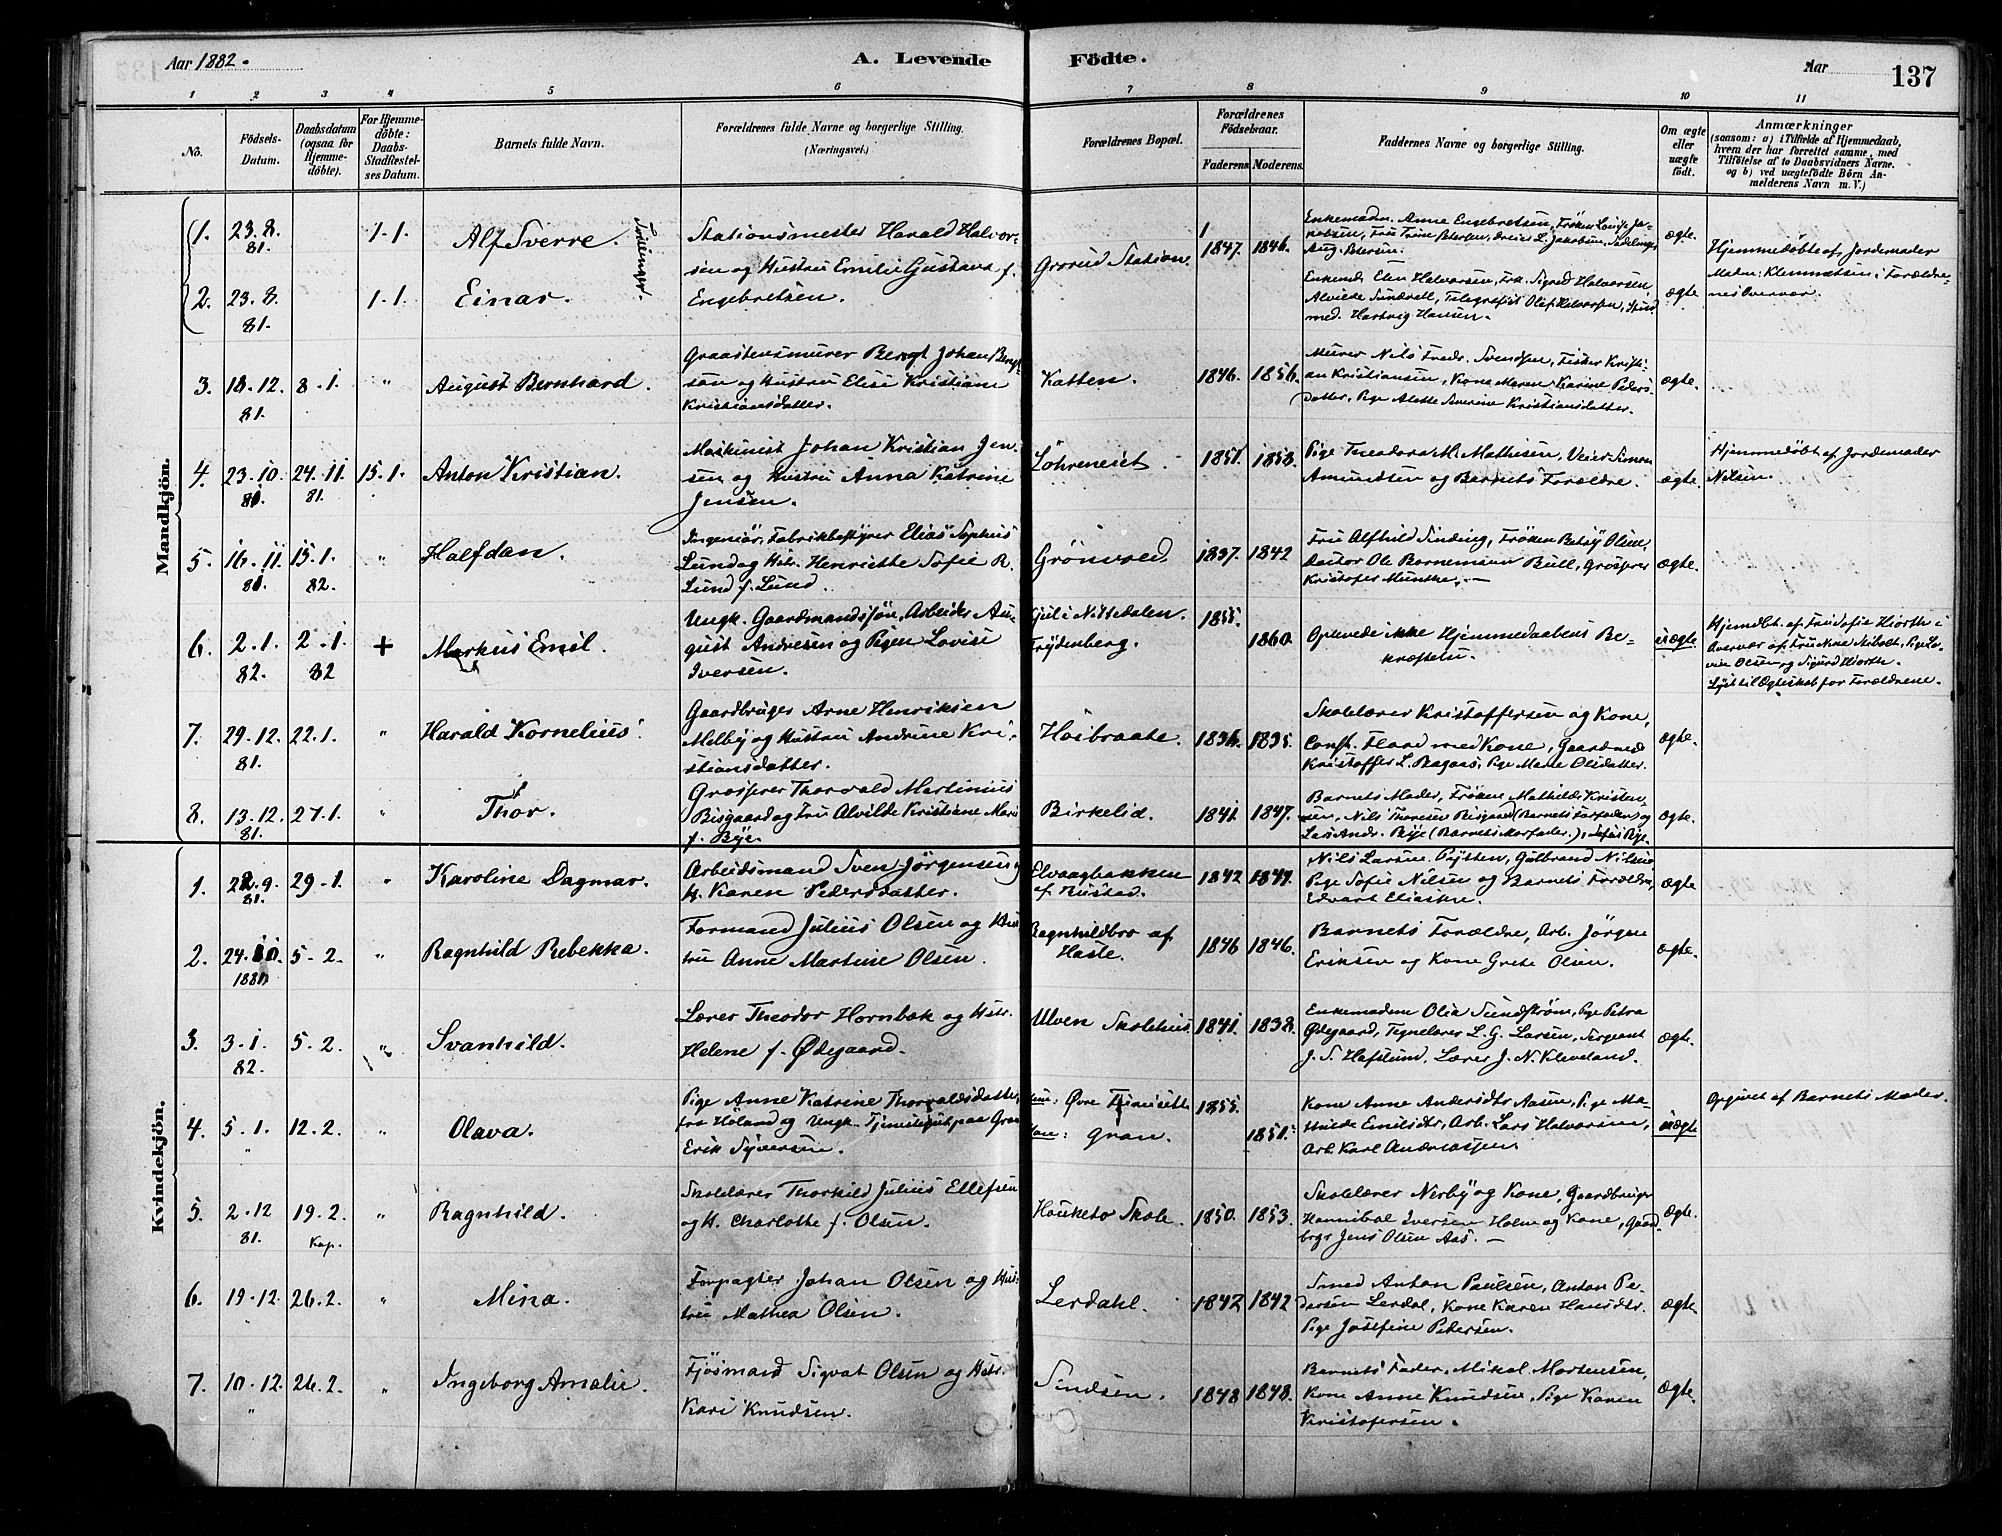 Aar 1882.
A. Levende Födte.
Aar
137
1 2 3 4 5 6 7 8 9 10 11
No.
Födsels-Datum.
Daabsdatum (ogsaa for Hjemmedöbte).
For Hjemmedöbte: Daabs-Stadfæstelses Datum.
Barnets fulde Navn.
Forældrenes fulde Navne og borgerlige Stilling.
(Næringsvei.)
Forældrenes Bopæl.
Forældrenes Födselsaar.
Faderens Moderens.
Faddernes Navne og borgerlige Stilling.
Om ægte eller uægte födt.
Anmærkninger
(saasom: a) i Tilfælde af Hjemmedaab, hvem der har forrettet samme, med Tilföielse af to Daabsvidners Navne. og b) ved uægtefödte Börn Anmelderens Navn m. V.)
Mandkjön.
1. 23.8. 81. 1-1. Alf Sverre. Tvillinger.
Stationsmester Harald Halvorsen og Hustru Emilie Gustava f. Engebretsen.
Grorud Station.
1847. 1846.
Enkemadm. Anne Engebretsen, Frøken Louise Jacobsen, Fru Trine Petersen, L. Jacobsen, Aug. Petersen.
ægte.
Hjemmedøbt af Jordemoder Madm. Klemmetsen i Forældrenes Overvær.
2. 23.8. 81. 1-1. Einar.
Enkemd. Elen Halvorsen, Frk. Sigrid Halvorsen, Alvilde Sundrell, Telegrafist Olaf Halvorsen, Stud. med. Hartvig Hansen.
ægte.
3. 18.12. 81. 8.1. " August Bernhard.
Graastensmurer Bengt Johan Bengtson og Hustru Elise Kristiane Kristiansdatter.
Katten.
1846. 1856.
Murer Nils Fredr. Svendsen, Fisker Kristian Kristiansen, Kone Maren Karine Pedersdatter, Pige Alette Severine Kristiansdatter.
ægte.
4. 23.10. 81. 24.11. 81. 15.1. Anton Kristian.
Maskinist Johan Kristian Jensen og Hustru Anna Katrine Jensen.
Løhreneiet.
1851. 1853.
Pige Theodora M. Mathisen, Veier Simon Amundsen og Barnets Forældre.
ægte.
Hjemmedøbt af Jordemoder Nilsen.
5. 16.11. 81. 15.1. 82. " Halfdan.
Ingeniør, Fabrikbestyrer Elias Sophus Lund og Hstr. Henriette Sofie R. Lund f. Lund.
Grönvold.
1837. 1842
Fru Alfhild Sinding, Frøken Betsy Olsen, Doctor Ole Bornemann Bull, Grosserer Kristofer Munthe.
ægte.
6. 2.1. 82. 2.1. 82 + Markus Emil.
Ungk. Gaardmandssøn, Arbeider August Andresen og Pigen Lovise Iversen.
Kjul i Nittedalen.
Frydenberg.
1855. 1860.
Oplevede ikke Hjemmedaabens Bekræftelse.
uægte
Hjemdbt. af Fru Sofie Hiorth i Overvær af Fru Anna Nilsen, Pige Lovise Olsen og Sigurd Hiorth. Lyst til Ægteskab for Forældrene.
7. 29.12. 81. 22.1. " Harald Kornelius.
Gaardbruger Arne Henriksen Melby og Hustru Andrine Kristiansdatter.
Høibraate.
1836. 1835.
Skolelærer Kristoffersen og Kone, Const. Flood med Kone, Gaardmd. Kristoffer L. Bogaas, Pige Marie Olsdatter.
ægte.
8. 13.12. 81. 27.1. " Thor.
Grosserer Thorvald Martinius Bisgaard og Fru Alvilde Kristiane Marie f. Bye.
Birkelid.
1841. 1847.
Barnets Moder, Frøken Mathilde Kristensen, Nils Thoresen Bisgaard (Barnets Farfader) og Lars Andr. Bye (Barnets Morfader.), Sofus Bye.
ægte.
Kvindekjön.
1. 22.9. 81. 29.1. " Karoline Dagmar.
Arbeidsmand Sven Jörgensen og H. Karen Pedersdatter.
Elvaagbakken af Rustad.
1842 1847.
Nils Larsen Pytten, Gulbrand Nilsen, Pige Sofie Nilsen og Barnets Forældre, Edvart Eliassen.
ægte
2. 24.10. 5-2. " Ragnhild Rebekka.
Formand Julius Olsen og Hustru Anne Martine Olsen.
Ragnhildbro af Hasle.
1846 1846.
Barnets Forældre, Arb. Jörgen Eriksen og Kone Grete Olsen.
ægte.
3. 3.1. 82. 5-2. " Svanhild.
Lærer Theodor Hornbæk og Hstr. Helene f. Ødegaard.
Ulven Skolehus.
1841. 1838.
Enkemadam Olia Sundstrøm, Pige Petra Ødegaard, Tegnelærer L. G. Larsen, Sergeant J. S. Hafslund, Lærer J. N. Kleveland.
ægte.
4. 5.1. " 12.2. " Olava.
Pige Anne Katrine Thorvaldsdatter, fra Höland og Ungk. Tjenestegut paa Gran Erik Syversen.
Hun: Øvre
Han: Gran.
1855. 1851.
Kone Anne Andersdtr Aasen, Pige Mathilde Emilsdtr, Arb. Lars Halvorsen, Arb. Karl Andreassen.
uægte
Opgivet af Barnets Moder.
5. 2.12 81. 19.2. Kap. " Ragnhild.
Skolelærer Thorkild Julius Ellefsen og H. Charlotte f. Olsen.
Hauketo Skole.
1850. 1853.
Skolelærer Nerby og Kone, Gaardbruger Hannibal Iversen Holm og Kone, Gaardbrgr Jens Olsen Aas.
ægte.
6. 19.12. " 26.2. " Mina.
Forpagter Johan Olsen og Hustru Mathea Olsen.
Lerdahl.
1842 1842
Smed Anton Paulsen, Anton Pedersen Lerdal, Kone Karen Hansdtr. Pige Josefine Petersen.
ægte.
7. 10.12. " 26.2. " Ingeborg Amalie.
Fjösmand Sigvat Olsen og Hstr. Kari Knudsen.
Sindsen.
1848 1848.
Barnets Fader, Mikal Mortensen, Kone Anne Knudsen, Pige Karen Kristofersen.
ægte